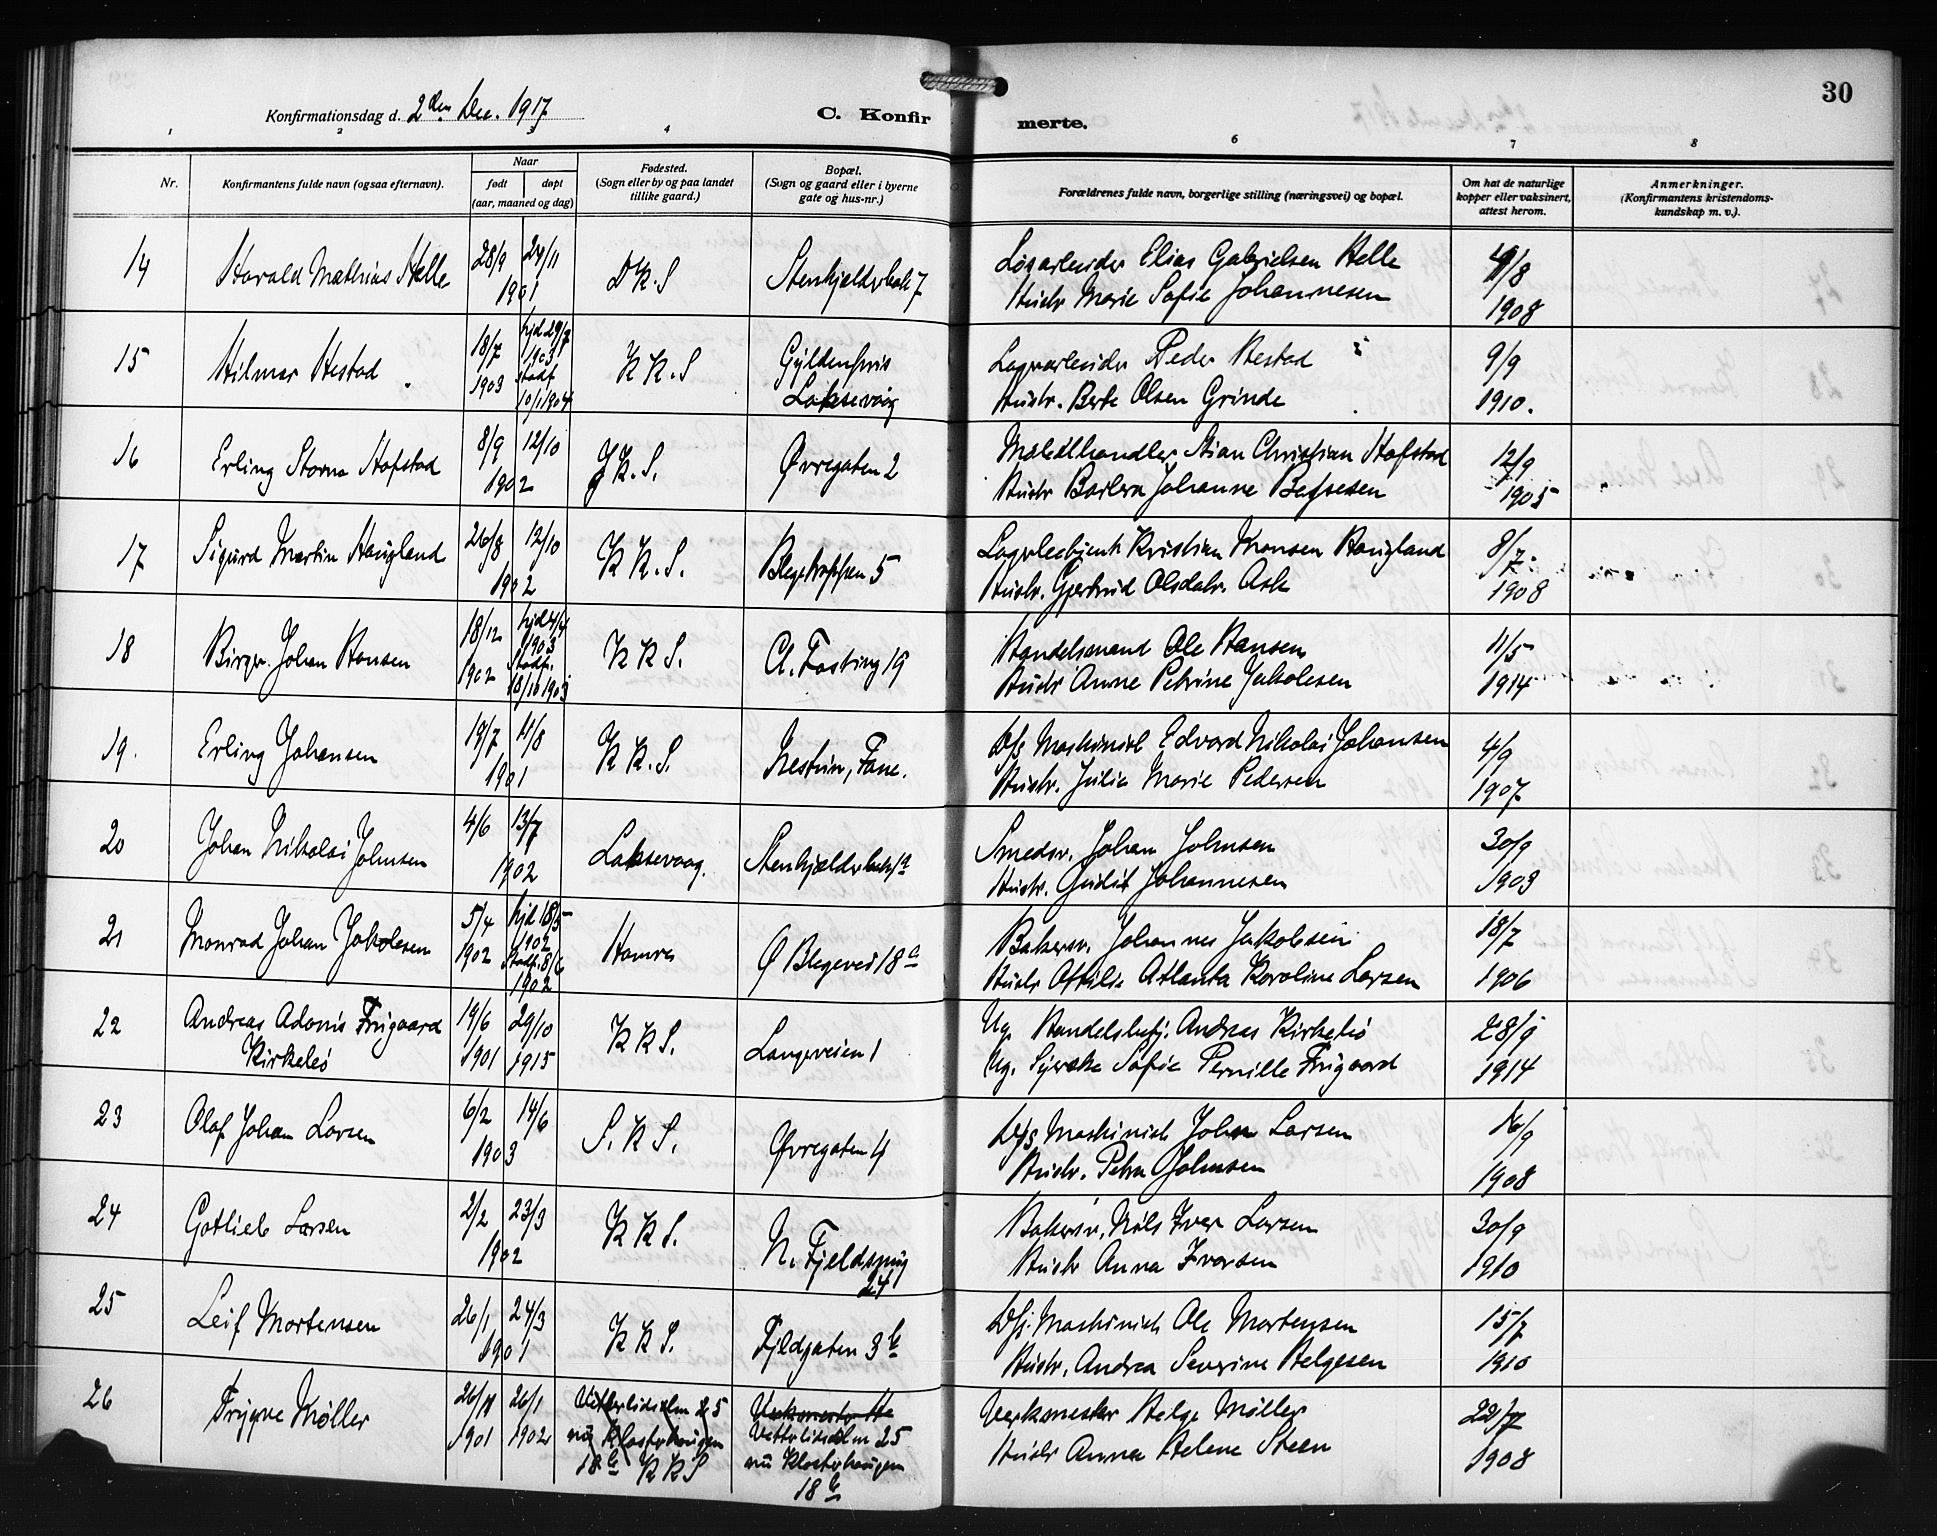 30
Konfirmationsdag d. 2den Dec. 1917
C. Konfirmerte.
1 2 3 4 6 7 8
Nr.
Konfirmantens fulde navn (ogsaa efternavn).
Naar
født døpt
(aar, maaned og dag)
Fødested.
(Sogn eller by og paa landet
tillike gaard.)
Bopæl.
(Sogn og gaard eller i byerne
gate og hus-nr.)
Forældrenes fulde navn, borgerlige stilling (næringsvei) og bopæl.
Om hat de naturlige
kopper eller vaksinert,
attest herom.
Anmerkninger.
(Konfirmantens kristendoms-
kundskap m. v.).
14 Harald Mathias Helle 28/9 24/11 1901 DK.S Elias Gabrielsen Helle
Hustr. Marie Sofie Johannesen 4/8 1908
15 Hilmar Hestad 18/7 1903 hjd 29/7 1903 stadf 10/1 1904 KK.S Gyldenpris
Laksevåg Peder Hestad
Hustr. Berte Olsen Grinde 9/9 1910.
16 Erling Storm Hofstad 8/9 12/10 1902 JK.S. Øvregaten 2 Stian Christian Hofstad
Hustr Johanne 12/9 1905
17 Sigurd Martin Haugland 26/8 12/10 1902 KK.S. Kristian Monsen Haugland
Hustr. Gjertrud Olsdatr. Ask 8/7 1908
18 Birger Johan Hansen 18/12 1902 hjd 4/4 1903 Stadf. 18/10 1903 KKS. Cl. Fasting 19
Handelsmand Ole Hansen
Hustr Anne Petrine Jakobsen 11/5 1914
19. Erling Johansen 19/7 11/8 1901 KK.S. Nestun, Fane.
Maskinist Edvard Nikolai Johansen
Hustr. Julie Marie Pedersen 4/9 1907
20 Johan Nikolai Johnsen 4/6 13/7 1902 Laksevaag.
Smedsv. Johan Johnsen
Hustr. Johannesen 30/9 1903
21 Monrad Johan Jakobsen 5/4 1902 hjd 18/5 1902 Stadf. 8/6 1902 Hamre Ø Blegevei 18 a
Bakersv. Johannes Jakobsen
Hustr Ottilie Atlanta Karoline Larsen 18/7 1906
22 Andreas Adonis Friigaard
Kirkelei 19/6 1901 29/10 1915 KKS. Langeveien 1
Ug. Handelsbetj. Andreas Kirkelei
Ug. Syerske Sofie Pernille Friigaard 28/9 1914
23 Olaf Johan Larsen 6/2 14/6 1903 S.KS. Øvregaten 4
Maskinist John Larsen
Hustr. Petra Johnsen 16/9 1908
24 Gotlieb Larsen 2/2 23/3 1902 KKS. N. Fjeldsmug
24
Bakersv. Nils Iver Larsen
Hustr Anna Iversen 30/9 1910
25 Leif Mortensen 26/1 24/3 1901 KKS. Fjeldgaten 3 b
Maskinist Ole Mortensen
Hustr. Andrea Severine Helgesen 15/7 1910
26 Trygve Møller 26/11 1901 26/1 1902 Vetterlidsalm 25
nu Klosterhaugen
18 b KKS
Vetterlidsalm 25
nu Klosterhaugen
18 b
Verksmester Helge Møller
Hustr Anna Helene Steen 22/7 1908